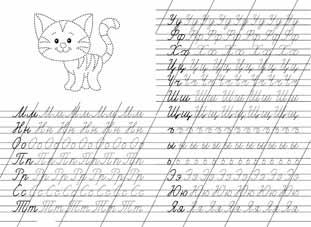 Мм Мм Мм Мм Мм Мм
Нн Нн Нн Нн Нн Нн
Оо Оо Оо Оо Оо Оо Оо
Пп Пп Пп Пп Пп Пп
Рр Рр Рр Рр Рр Рр
Сс Сс Сс Сс Сс Сс Сс
Тт Тт Тт Тт Тт
Уу Уу Уу Уу Уу Уу Уу
Фф Фф Фф Фф Фф Фф
Хх Хх Хх Хх Хх
Цц Цц Цц Цц Цц Цц
Чч Чч Чч Чч Чч Чч Чч
Шш Шш Шш Шш Шш
Щщ Щщ Щщ Щщ Щщ
ъ ъ ъ ъ ъ ъ ъ ъ ъ
ы ы ы ы ы ы ы ы ы
ь ь ь ь ь ь ь ь ь ь
Ээ Ээ Ээ Ээ Ээ Ээ Ээ
Юю Юю Юю Юю Юю
Яя Яя Яя Яя Яя Яя